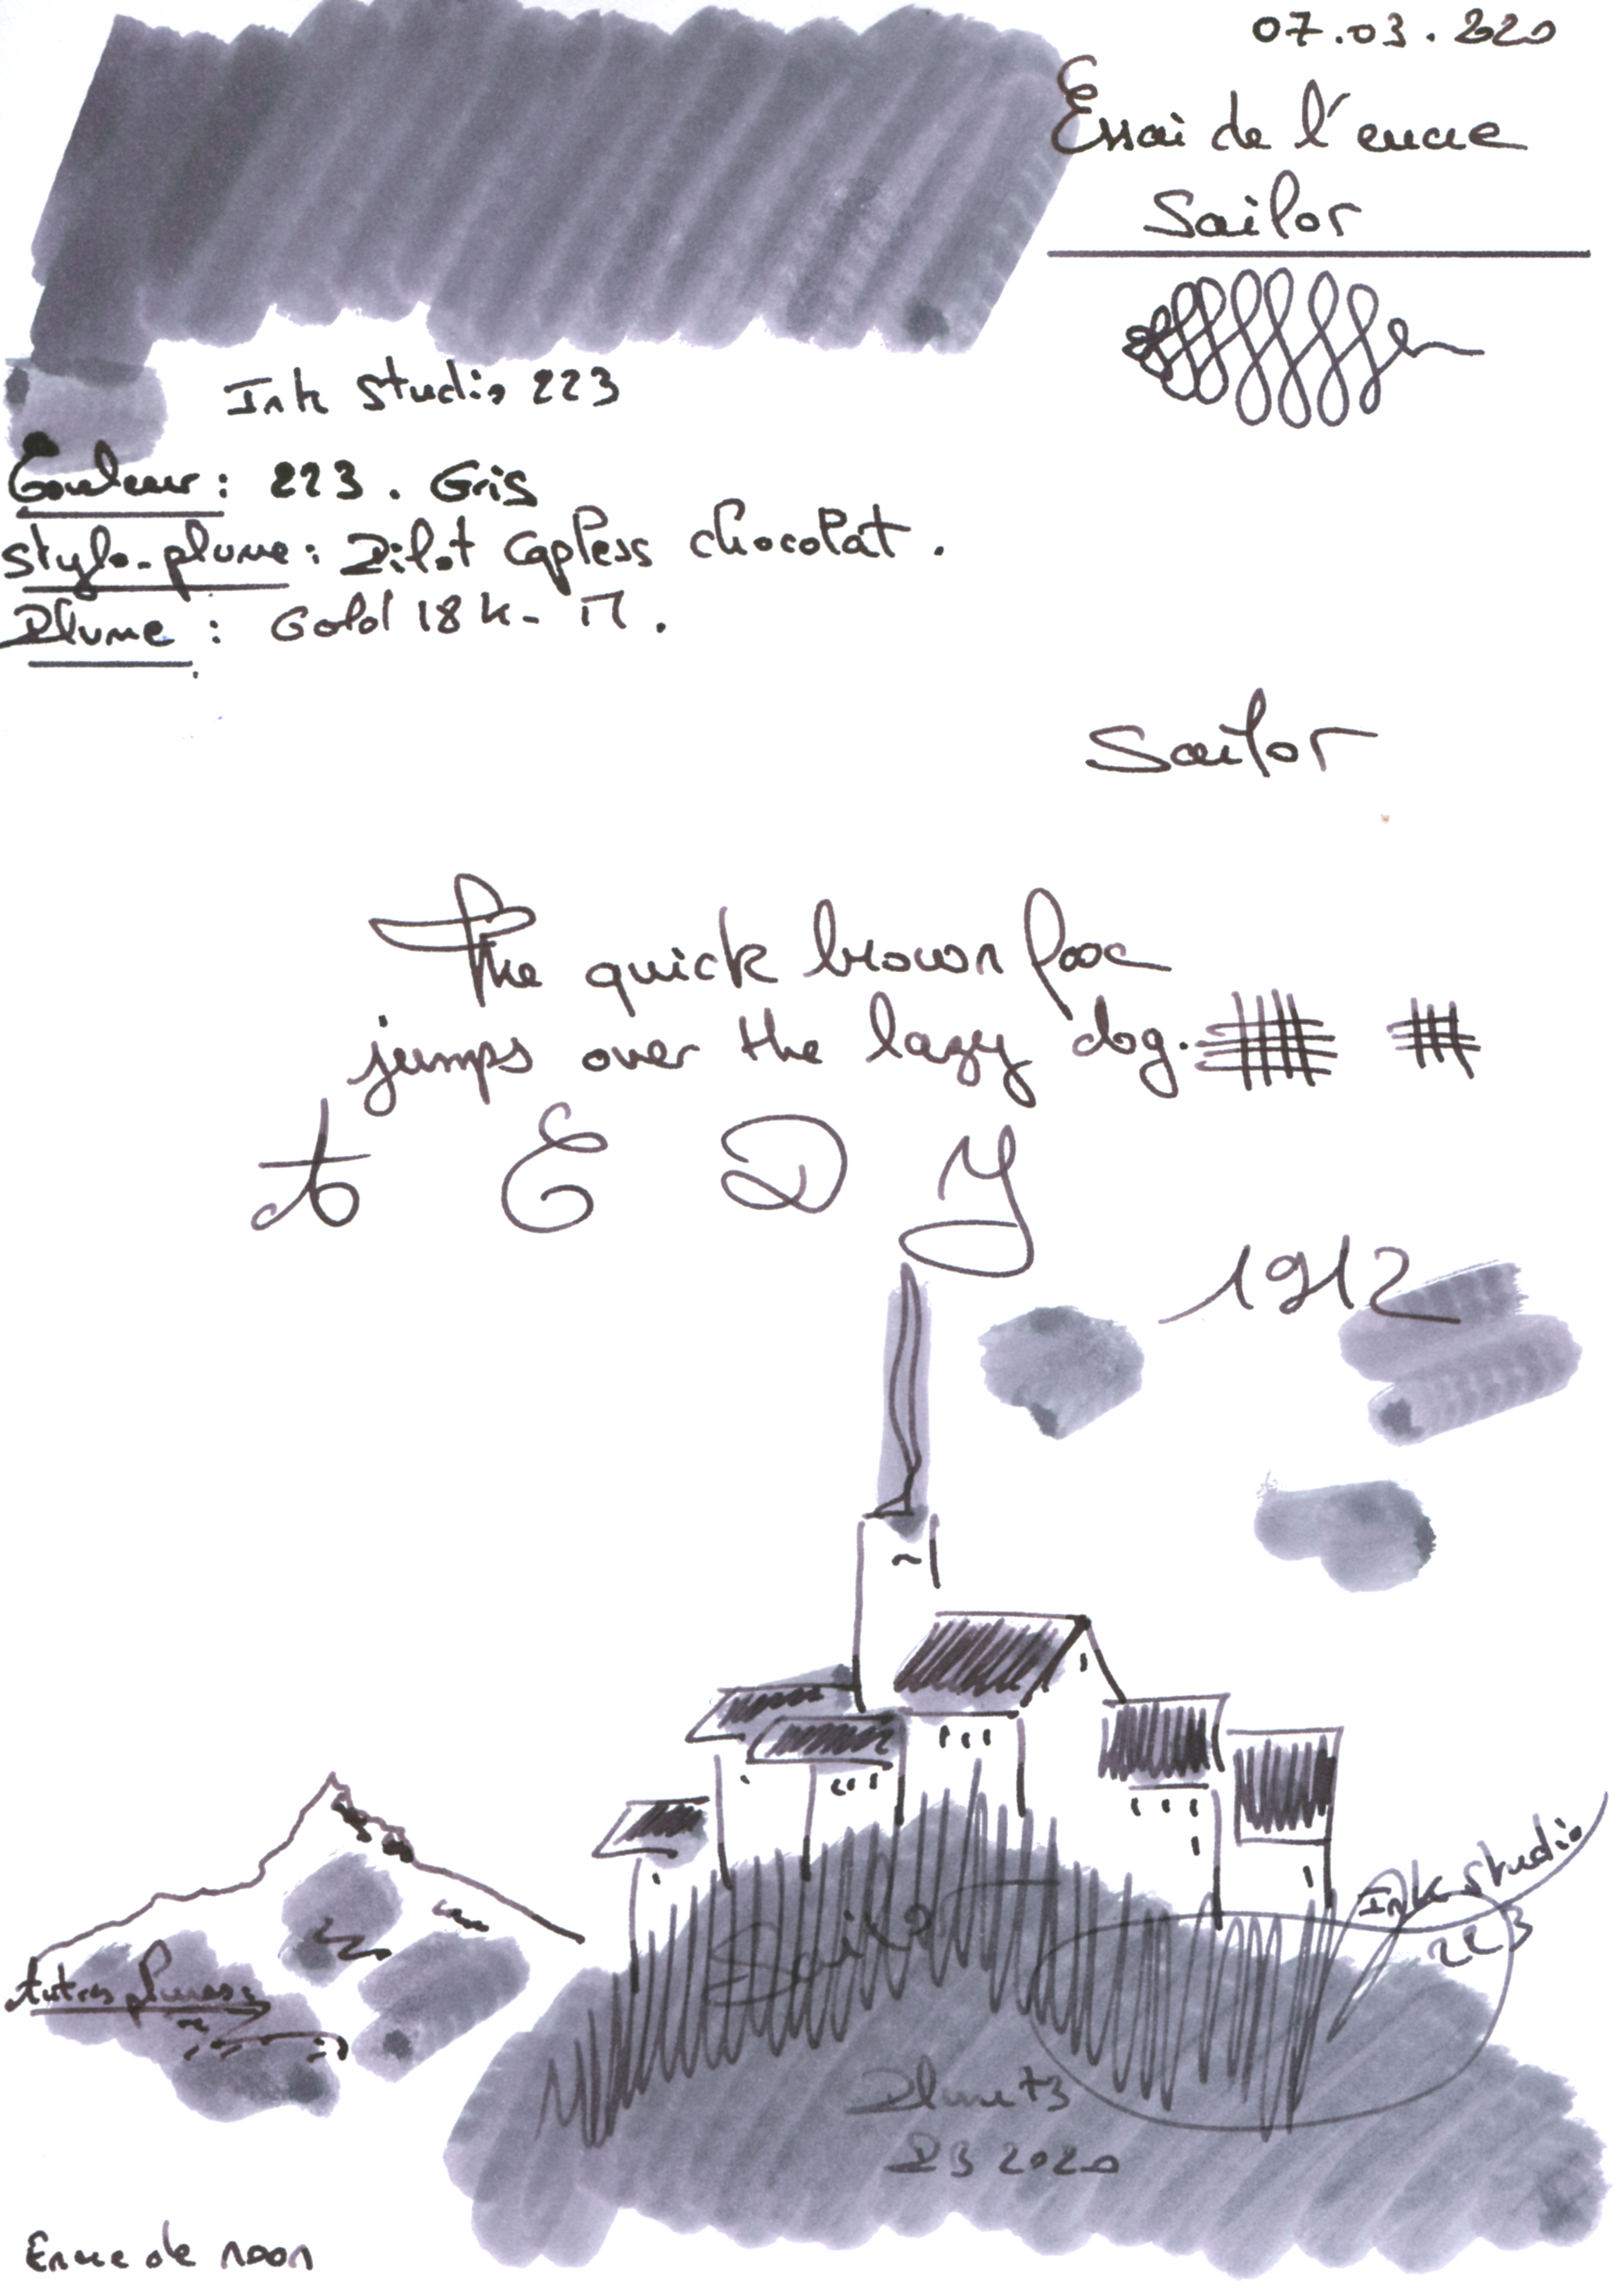 07.03.2020
Essai de l'encre
Sailor
Ink Studio 223
Couleur : 223. Gris
Stylo-plume : Pilot Capless chocolat.
Plume : Gold 18k - M.
Sailor
The quick brown fox
jumps over the lazy dog.
A E D Y
1912
Ink Studio
223
Sailor
Autres plumes
Plume 73
P3 2020
Encre de